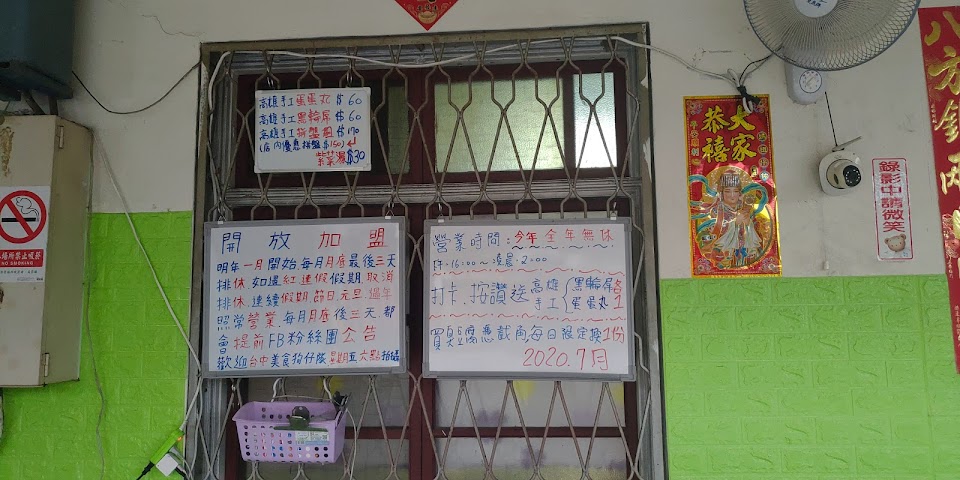 高雄手工蛋蛋丸$60
高雄手工黑輪屌$60
$170
(店內優惠 $150)
紫菜湯$30
開放加盟
明年一月開始每月月底最後三天
排休.如遇紅連假假期.取消
排休.連續假期.節日.元旦.過年
照常營業.每月月底後三天都
會提前FB粉絲團公告
歡迎台中美食狗仔隊星期五六點
營業時間:今年全年無休
16:00~凌晨:2:00
打卡.按讚送高雄手工
黑輪屌
蛋蛋丸
各1
買臭豆腐憑戲角,每日限定換1份
2020.7月
恭禧
大家
錄影中請微笑
本場所禁止吸菸
NO SMOKING
八方